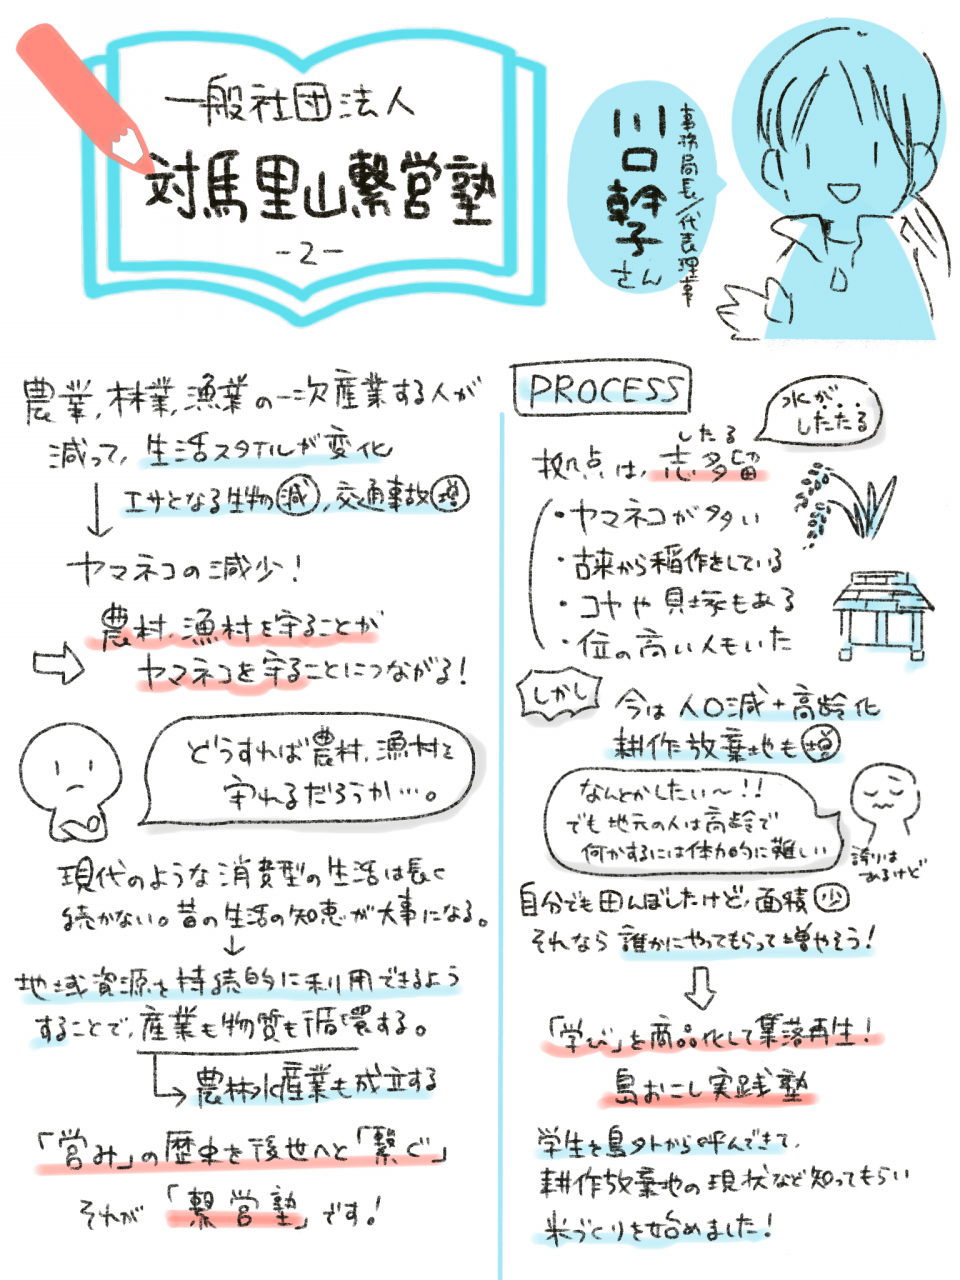 一般社団法人
対馬里山繋営塾
-2-
事務局長/代表理事
川口幹子さん
農業,林業,漁業の一次産業する人が
減って,生活スタイルが変化
エサとなる生物減,交通事故増
ヤマネコの減少!
農村,漁村を守ることが
ヤマネコを守ることにつながる!
どうすれば農村,漁村を
守れるだろうか…。
現代のような消費型の生活は長く
続かない。昔の生活の知恵が大事になる。
地域資源を持続的に利用できるよう
することで,産業も物質も循環する。
農林水産業も成立する
「営み」の歴史を後世へと「繋ぐ」
それが「繋営塾」です!
PROCESS
水が...
したたる
したる
拠点は,志多留
・ヤマネコが多い
・古来から稲作をしている
・コヤや貝塚もある
・位の高い人もいた
しかし
今は人口減+高齢化
耕作放棄地も増
なんとかしたい〜!!
でも地元の人は高齢で
何かするには体力的に難しい
誇りは
あるけど
自分でも田んぼしたけど,面積少
それなら誰かにやってもらって増やそう!
「学び」を商品化して集落再生!
島おこし実践塾
学生を島外から呼んできて,
耕作放棄地の現状など知ってもらい
米づくりを始めました!